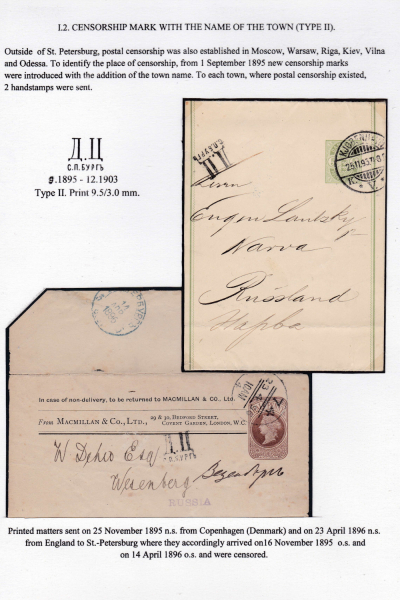 I.2. CENSORSHIP MARK WITH THE NAME OF THE TOWN (TYPE II).
Outside of St. Petersburg, postal censorship was also established in Moscow, Warsaw, Riga, Kiev, Vilna
and Odessa. To identify the place of censorship, from 1 September 1895 new censorship marks
were introduced with the addition of the town name. To each town, where postal censorship existed,
2 handstamps were sent.
Д.Ц
С.П.БУРГЪ
9.1895 - 12.1903
Type II. Print 9.5/3.0 mm.
Д.Ц
С.П.БУРГЪ
Herrn
Eugen
Narva
Russland
Нарва
In case of non-delivery, to be returned to MACMILLAN & CO. Ltd.
From MACMILLAN & CO., LTD., 29 & 30, BEDFORD STREET,
COVENT GARDEN, LONDON, W.C.
Д.Ц
С.П.БУРГЪ
W Dehio Esq
Wesenberg
Везенбергъ
RUSSIA
Printed matters sent on 25 November 1895 n.s. from Copenhagen (Denmark) and on 23 April 1896 n.s.
from England to St.-Petersburg where they accordingly arrived on16 November 1895 o.s. and
on 14 April 1896 o.s. and were censored.